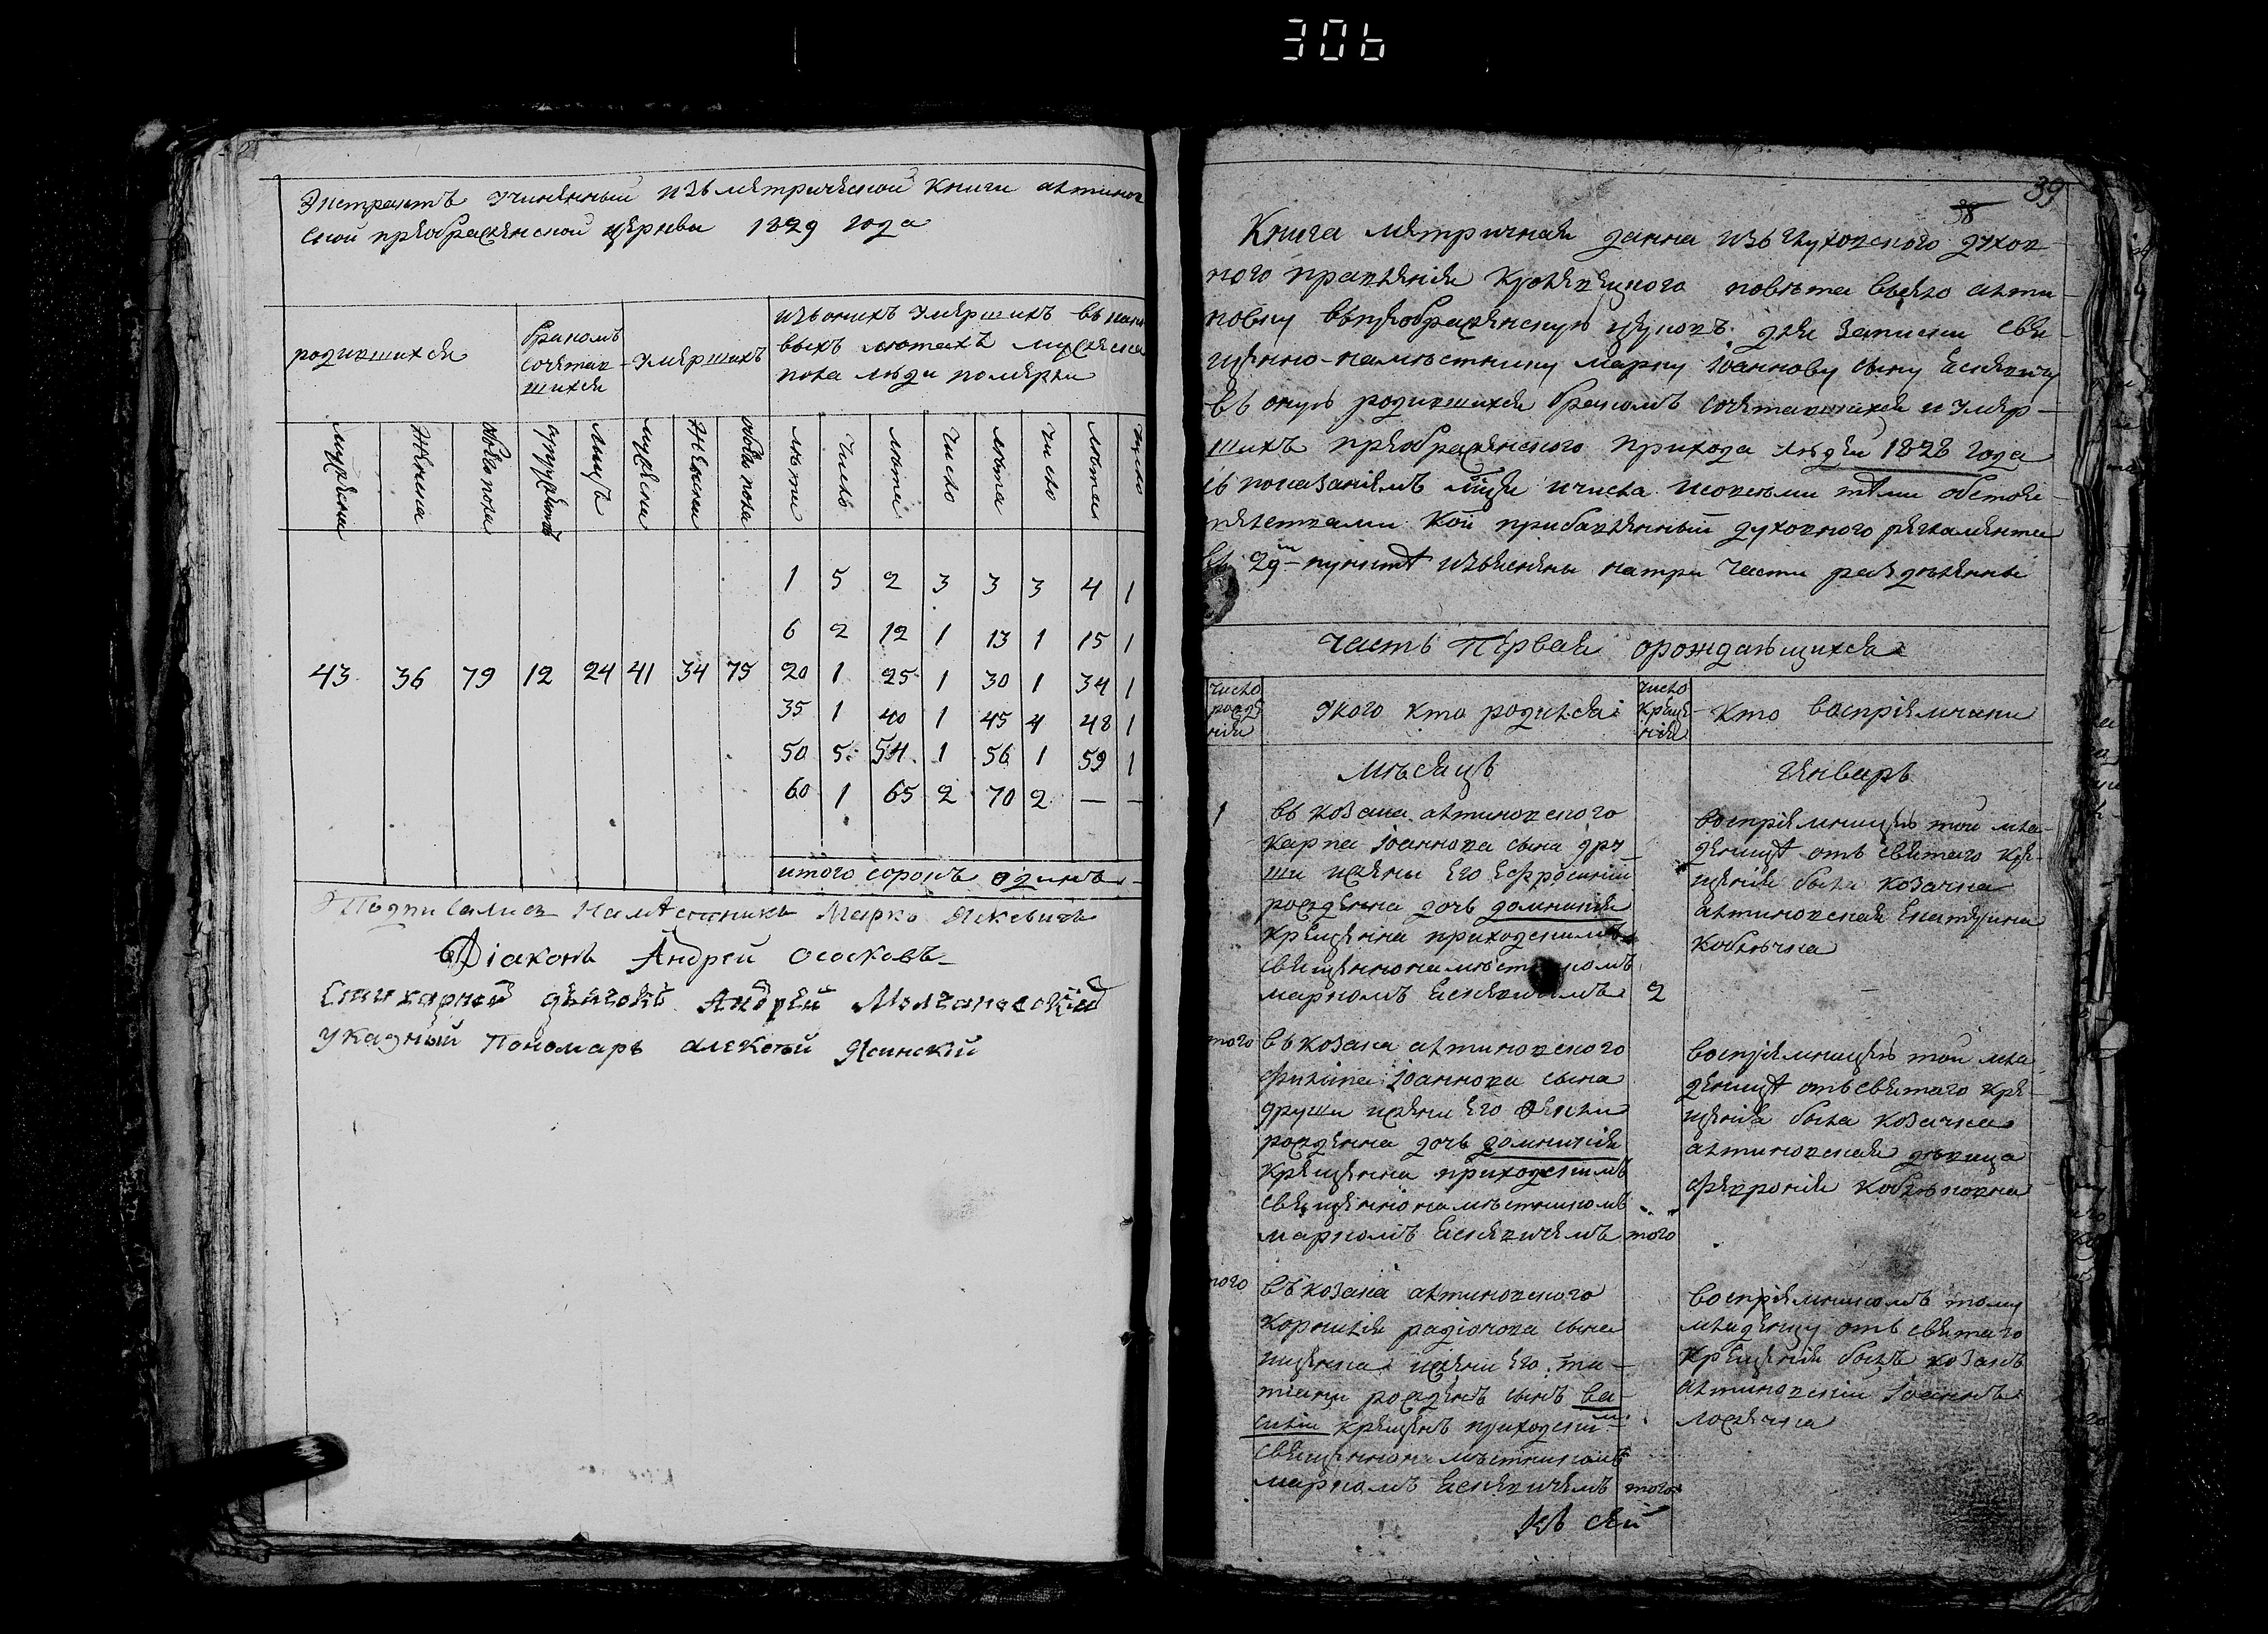 306
Экстрактъ учиненный изъ метрической книги алтинов
ской преображенской церкви 1829 года
родившихся
бракомъ
сочетав
шихся
умершихъ
изъ оныхъ умершихъ въ како
выхъ летахъ мужеска
пола люди померли
мужеска
женска
обоего пола
супружествъ
лицъ
мужеска
женска
обоего пола
лета
число
лета
число
лета
число
лета
число
1 5 2 3 3 3 4 1
6 2 12 1 13 1 15 1
43 36 79 12 24 41 34 75 20 1 25 1 30 1 34 1
35 1 40 1 45 4 48 1
50 5 54 1 56 1 59 1
60 1 65 2 70 2 — —
итого сорокъ одинъ
Подписались Наместникъ Марко Яскевичъ
Діаконъ Андрей Ососковъ
Стихарный дьячокъ Андрей Молчановскій
указный Пономаръ алексѣй Ясинскій
39
38
Книга метричная данна изъ Глуховского духов-
ного правленія Кролевецкого повѣта въ село алти-
новку въ преображенскую церковъ для записки свя-
щенно-наместнику марку Іоаннову сыну Ескевичу
въ оную родившихся бракомъ сочетавшихся и умер-
шихъ преображенского прихода людей 1828 года
съ показаніемъ месяца и числа и со всеми теми обстоя-
телствами кои прибавленный духовного регламента
въ 29м пункте изъяснены на три части разделенны
Часть Первая о рождающихся
число
рожде
нія
у кого кто родился
число
креще-
нія
кто воспріемники
месяцъ
Генваръ
1
въ козака алтиновского
карпа Іоаннова сына дру
ши и жены его Ефросиніи
рожденна дочь домникія
крещенна приходскимъ
священнонаместникомъ
маркомъ Ескевичемъ 2
воспріемницею той мла-
денице отъ святаго кре-
щенія была козачка
алтиновская Екатерина
кобилочка
того
въ козака алтиновского
филипа Іоаннова сына
друши и жени его Феклы
рожденна дочь домникія
крещенна приходскимъ
священнонаместникомъ
маркомъ Ескевичемъ того
воспріемницею той мла
денице отъ святаго кре-
щенія была козачка
алтиновская девица
феврония
того
въ козака алтиновского
корнилія радіонова сына
ищенка и жени его та-
тіаны рожденъ сынъ ва-
силій крещенъ приходским
священнонаместникомъ
маркомъ Ескевичемъ того
воспріемникомъ тому
младенцу отъ святаго
крещенія былъ козакъ
алтиновскій Іоаннъ
ложечка
къ сей